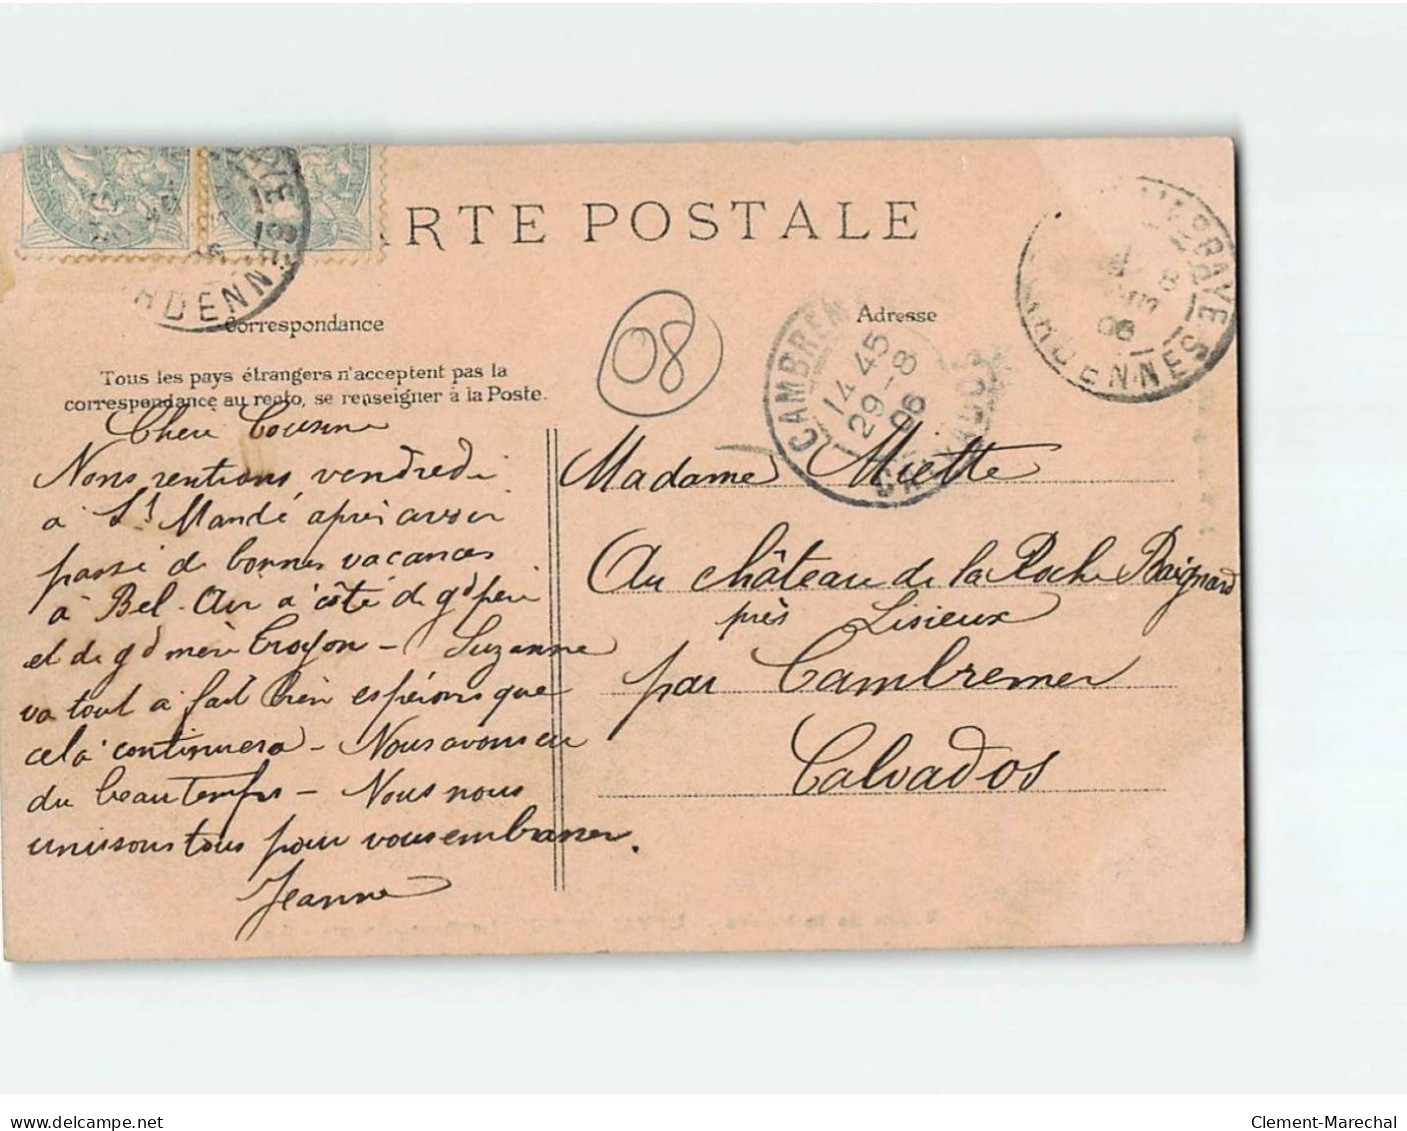 CARTE POSTALE
Correspondance
Adresse
Tous les pays étrangers n'acceptent pas la
correspondance au recto, se renseigner à la Poste.
08
CAMBREMER
14 45
29 - 8
06
CALVADOS
8
06
ARDENNES
ARDENNES
Chère Cousine
Nous rentrons vendredi
à St Mandé après avoir
passé de bonnes vacances
à Bel-Air à côté de gd père
et de gd mère Croyon - Suzanne
va tout à fait bien espérons que
celà continuera - Nous avons eu
du beau temps - Nous nous
unissons tous pour vous embrasser.
Jeanne
Madame Miette
Au château de la Roche Baignard
près Lisieux
par Cambremer
Calvados
www.delcampe.net
Clement-Marechal